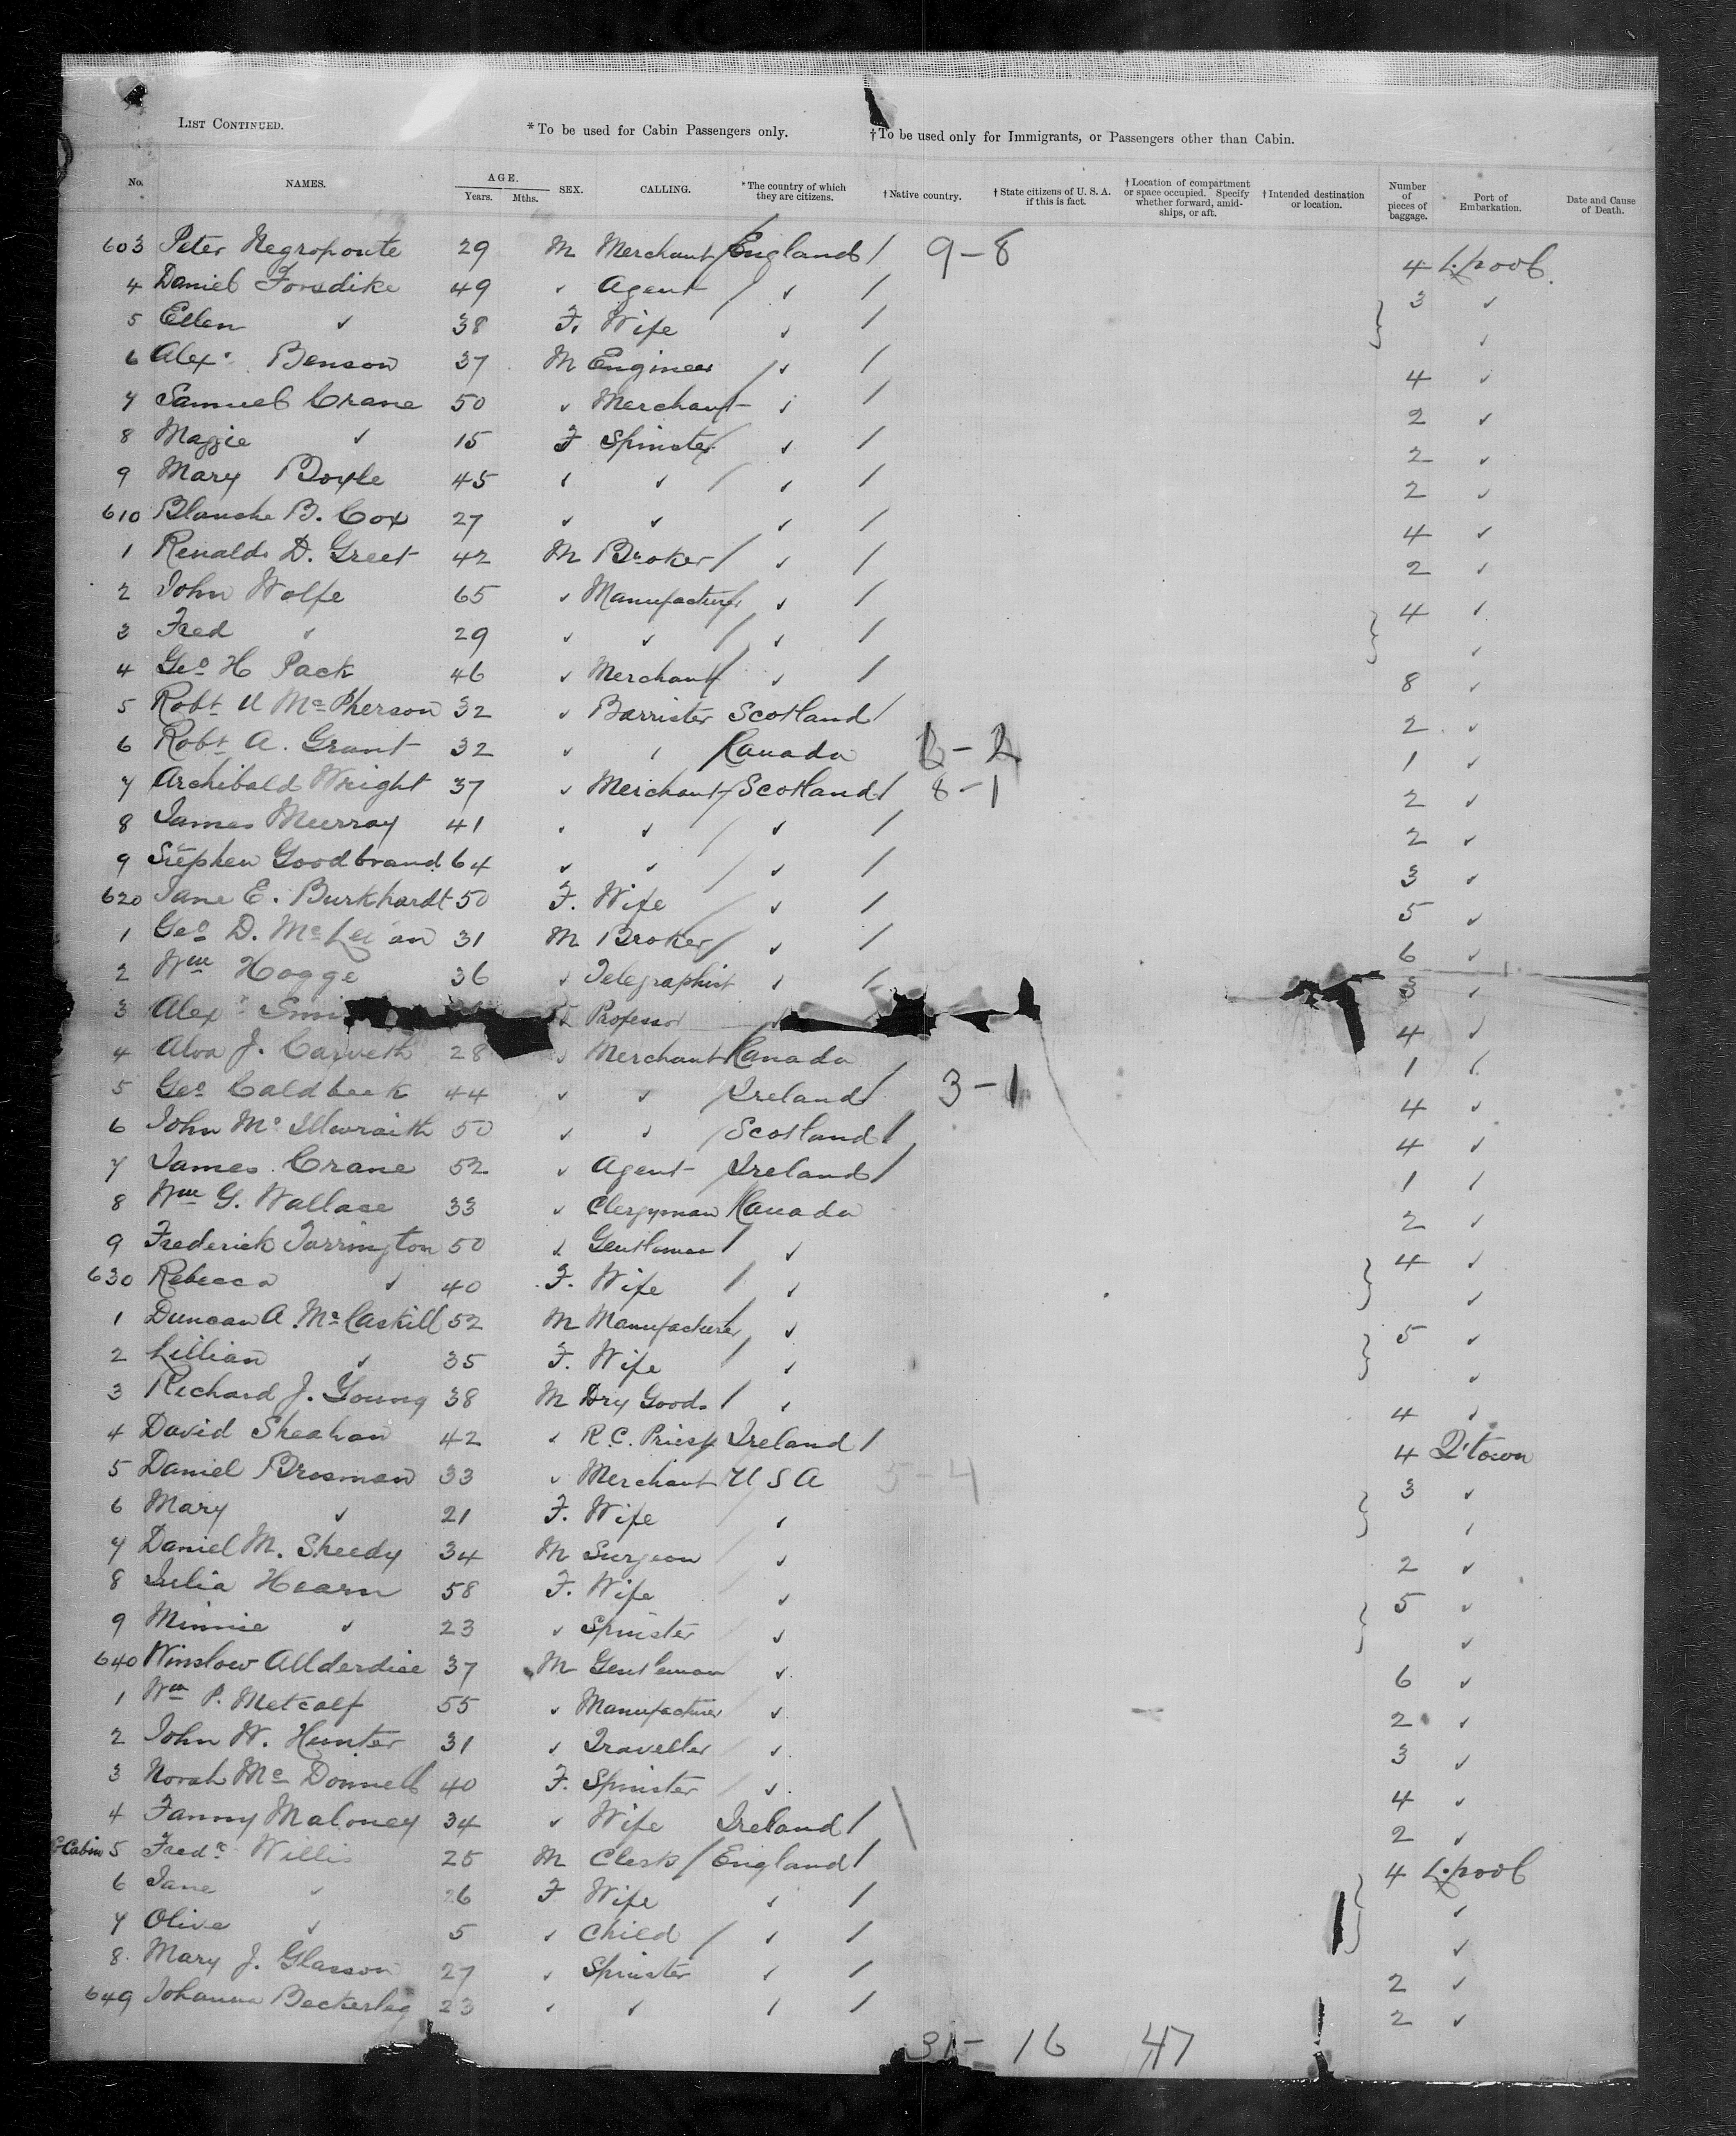 LIST CONTINUED. *To be used for Cabin Passengers only. †To be used only for Immigrants, or Passengers other than Cabin.
No. NAMES. AGE. Years. Mths. SEX. CALLING. *The country of which they are citizens. †Native country. †State citizens of U. S. A. if this is fact. †Location of compartment or space occupied. Specify whether forward, amidships, or aft. †Intended destination or location. Number of pieces of baggage. Port of Embarkation. Date and Cause of Death.
603 Peter Negroponte 29 M Merchant England / 9-8 4 L'pool.
4 Daniel Forsdike 49 ✓ Agent ✓ / 3 ✓
5 Ellen ✓ 38 F. Wife ✓ / ✓
6 Alexr Benson 37 M Engineer ✓ / 4 ✓
7 Samuel Crane 50 ✓ Merchant ✓ / 2 ✓
8 Maggie ✓ 15 F Spinster ✓ / 2 ✓
9 Mary Boyle 45 ✓ ✓ ✓ / 2 ✓
610 Blanche B. Cox 27 ✓ ✓ ✓ / 4 ✓
1 Renaldo D. Greet 42 M Broker ✓ / 2 ✓
2 John Wolfe 65 ✓ Manufacturer ✓ / 4 ✓
3 Fred ✓ 29 ✓ ✓ ✓ / ✓
4 Geo H Pack 46 ✓ Merchant ✓ / 8 ✓
5 Robt U McPherson 32 ✓ Barrister Scotland / 2 ✓
6 Robt A. Grant 32 ✓ ✓ Canada 1 ✓
7 Archibald Wright 37 ✓ Merchant Scotland / 8-1 2 ✓
8 James Murray 41 ✓ ✓ ✓ / 2 ✓
9 Stephen Goodbrand 64 ✓ ✓ ✓ / 3 ✓
620 Jane E. Burkhardt 50 F. Wife ✓ / 5 ✓
1 Geo D. McLean 31 M Broker ✓ / 6 ✓
2 Wm Hogge 36 ✓ Telegraphist ✓ / 3 ✓
3 Alexr Professor 4 ✓
4 Alva J. Carveth 28 ✓ Merchant Canada 1 ✓
5 Geo Caldbeck 44 ✓ ✓ Ireland / 3-1 4 ✓
6 John McIlwraith 50 ✓ ✓ Scotland / 4 ✓
7 James Crane 52 ✓ Agent Ireland / 1 ✓
8 Wm G. Wallace 33 ✓ Clergyman Canada 2 ✓
9 Frederick Tarrington 50 ✓ Gentleman ✓ 4 ✓
630 Rebecca ✓ 40 F. Wife ✓ ✓
1 Duncan A. McCaskill 52 M Manufacturer ✓ 5 ✓
2 Lillian ✓ 35 F. Wife ✓ ✓
3 Richard J. Young 38 M Dry Goods ✓ 4 ✓
4 David Sheahan 42 ✓ R.C. Priest Ireland / 4 Q'town
5 Daniel Brosman 33 ✓ Merchant U S A 5-4 3 ✓
6 Mary ✓ 21 F. Wife ✓ ✓
7 Daniel M. Sheedy 34 M Surgeon ✓ 2 ✓
8 Julia Hearn 58 F. Wife ✓ 5 ✓
9 Minnie ✓ 23 ✓ Spinster ✓ ✓
640 Winslow Allderdice 37 M Gentleman ✓ 6 ✓
1 Wm P. Metcalf 55 ✓ Manufacturer ✓ 2 ✓
2 John W. Hunter 31 ✓ Traveller ✓ 3 ✓
3 Norah McDonnell 40 F. Spinster ✓ 4 ✓
4 Fanny Maloney 34 ✓ Wife Ireland / 2 ✓
Cabin 5 Fredc Willis 25 M Clerk England / 4 L'pool
6 Jane ✓ 26 F Wife ✓ / ✓
7 Olive ✓ 5 ✓ Child ✓ / ✓
8 Mary J. Glasson 27 ✓ Spinster ✓ / 2 ✓
649 Johanna Beckerleg 23 ✓ ✓ ✓ / 2 ✓
31- 16 47